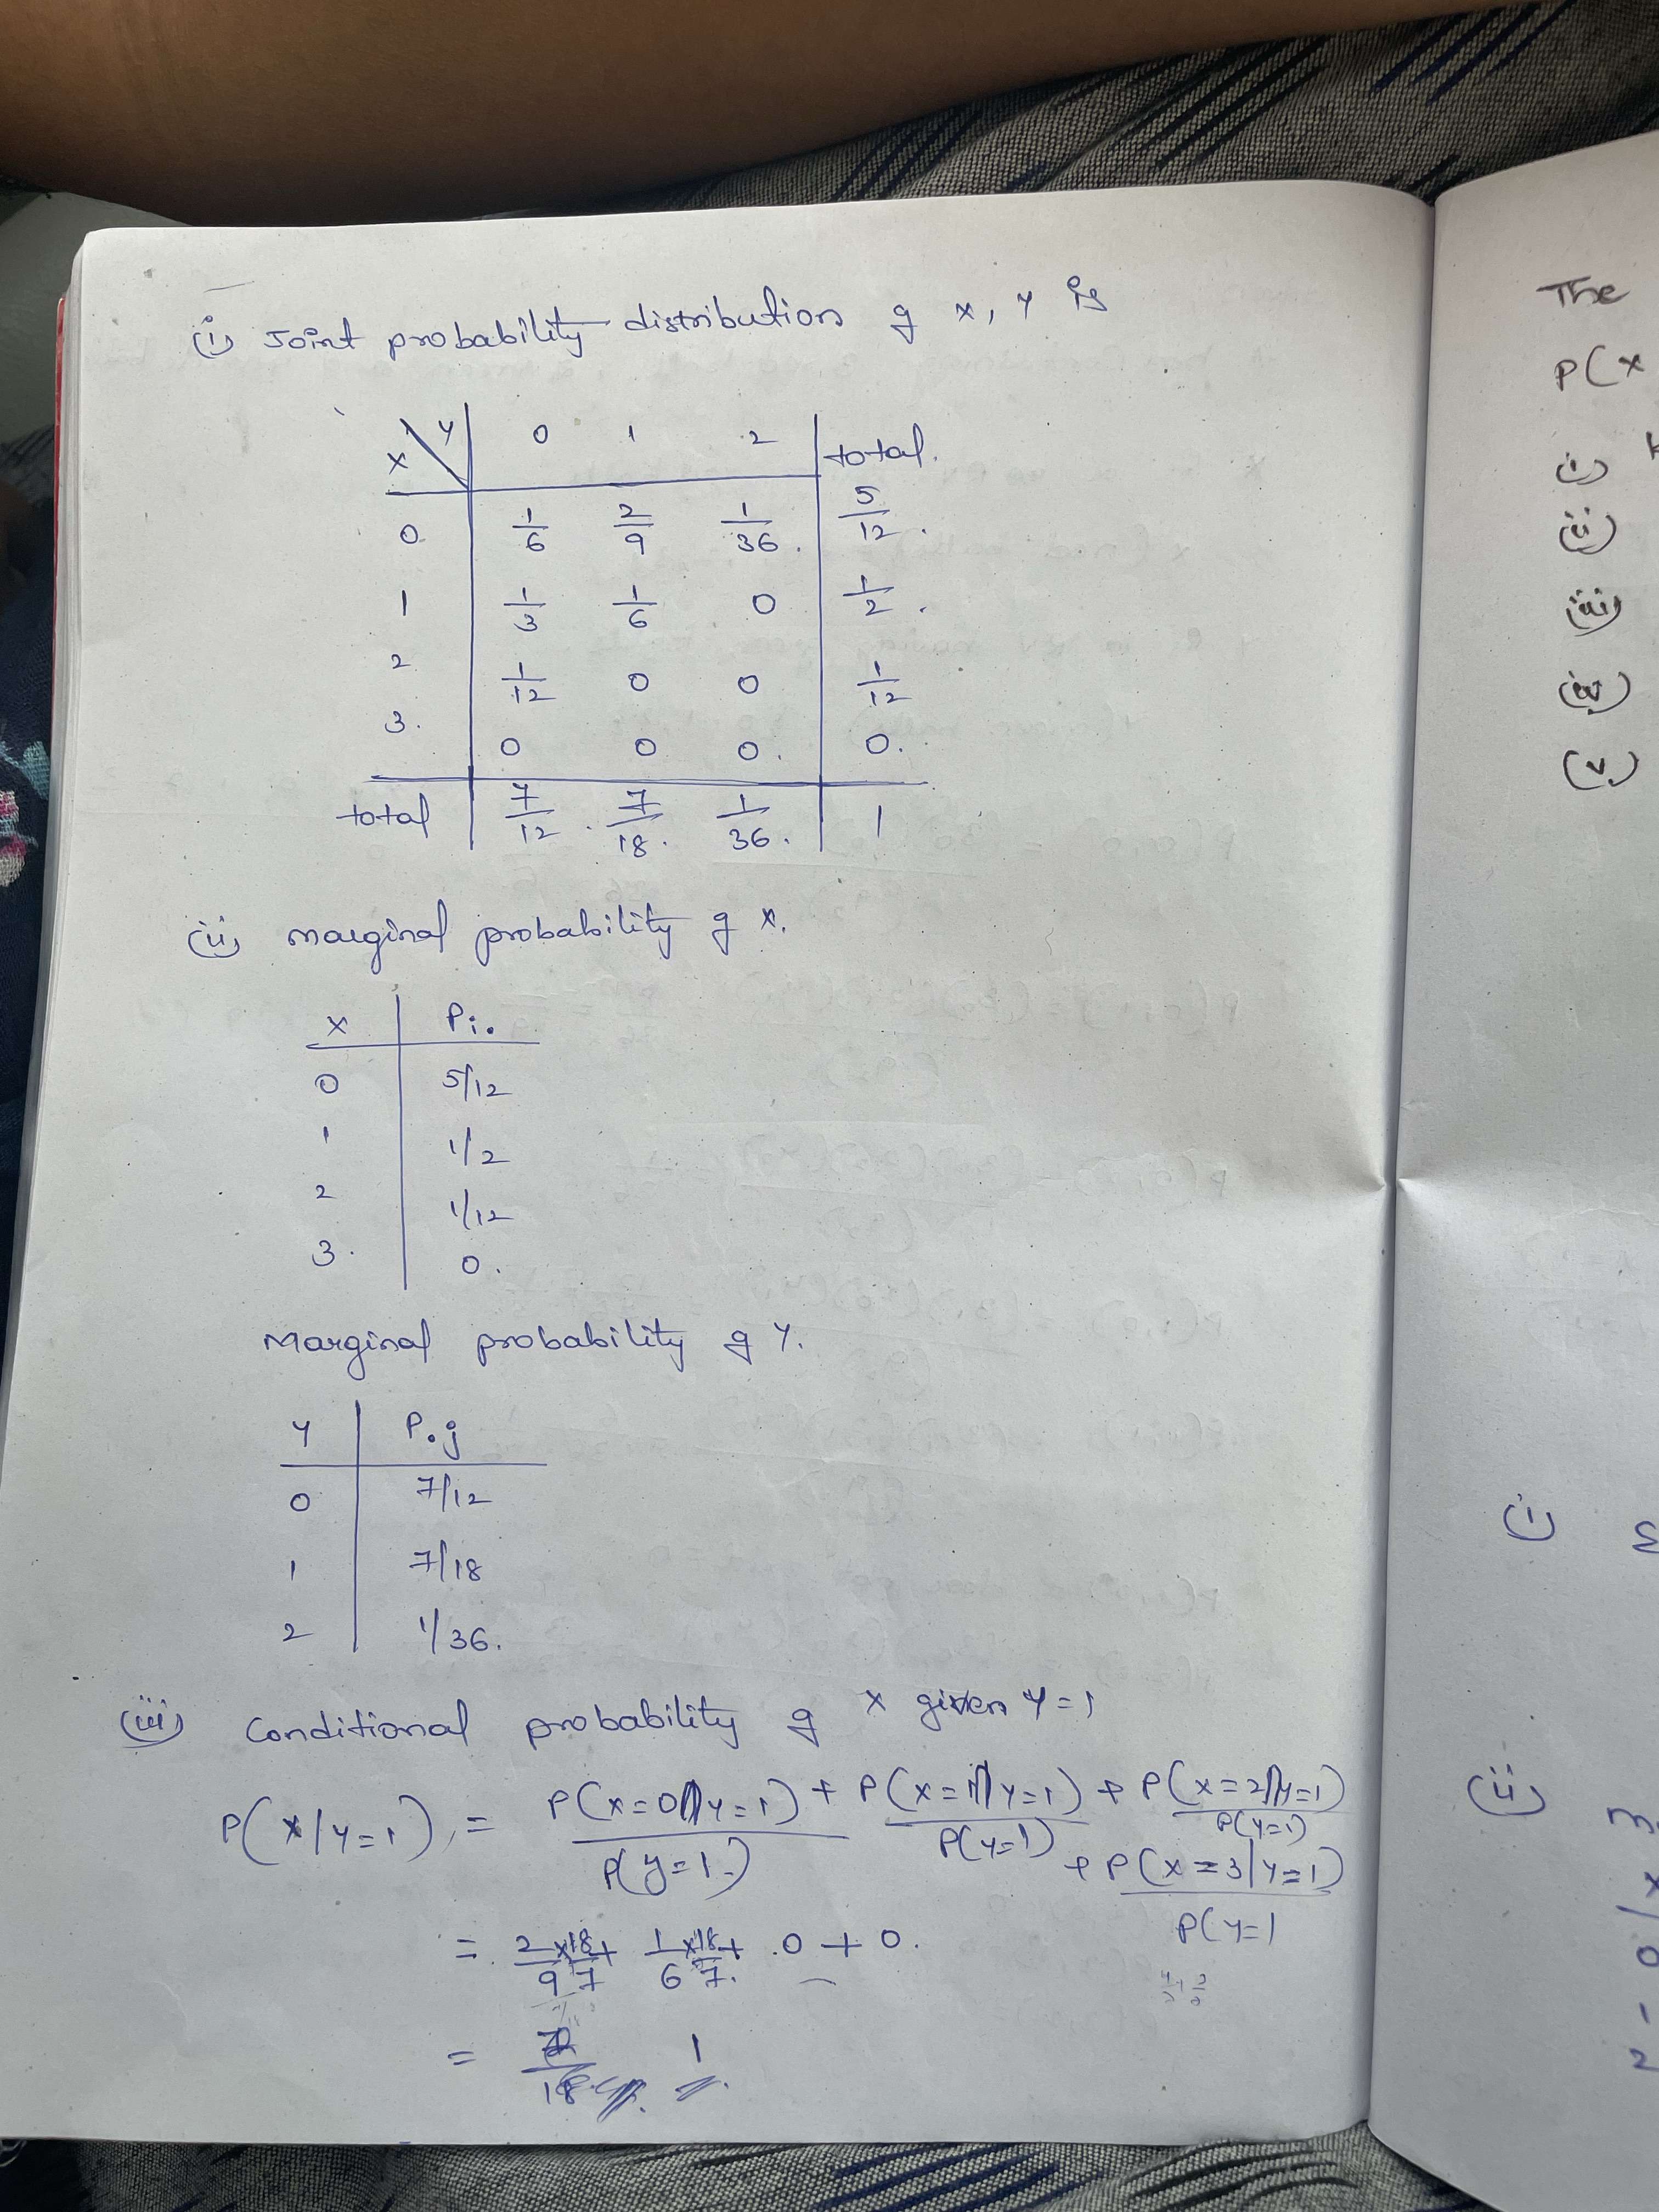 (i) Joint probability distribution of x, y is
x \ y 0 1 2 total.
0 1/6 2/9 1/36. 5/12.
1 1/3 1/6 0 1/2.
2 1/12 0 0 1/12
3. 0 0 0. 0.
total 7/12. 7/18. 1/36. 1
(ii) marginal probability of x.
x Pi.
0 5/12
1 1/2
2 1/12
3. 0.
Marginal probability of y.
y P.j
0 7/12
1 7/18
2 1/36.
(iii) Conditional probability of x given y=1
P(x/y=1) = P(x=0∩y=1)/P(y=1) + P(x=1∩y=1)/P(y=1) + P(x=2∩y=1)/P(y=1)
+ P(x=3|y=1)/P(y=1
= 2/9 × 18/7 + 1/6 × 18/7. + 0 + 0.
= 1
The
P(x
(i)
(ii)
(iii)
(iv)
(v)
(i) Σ
(ii) 3
x
0
1
2